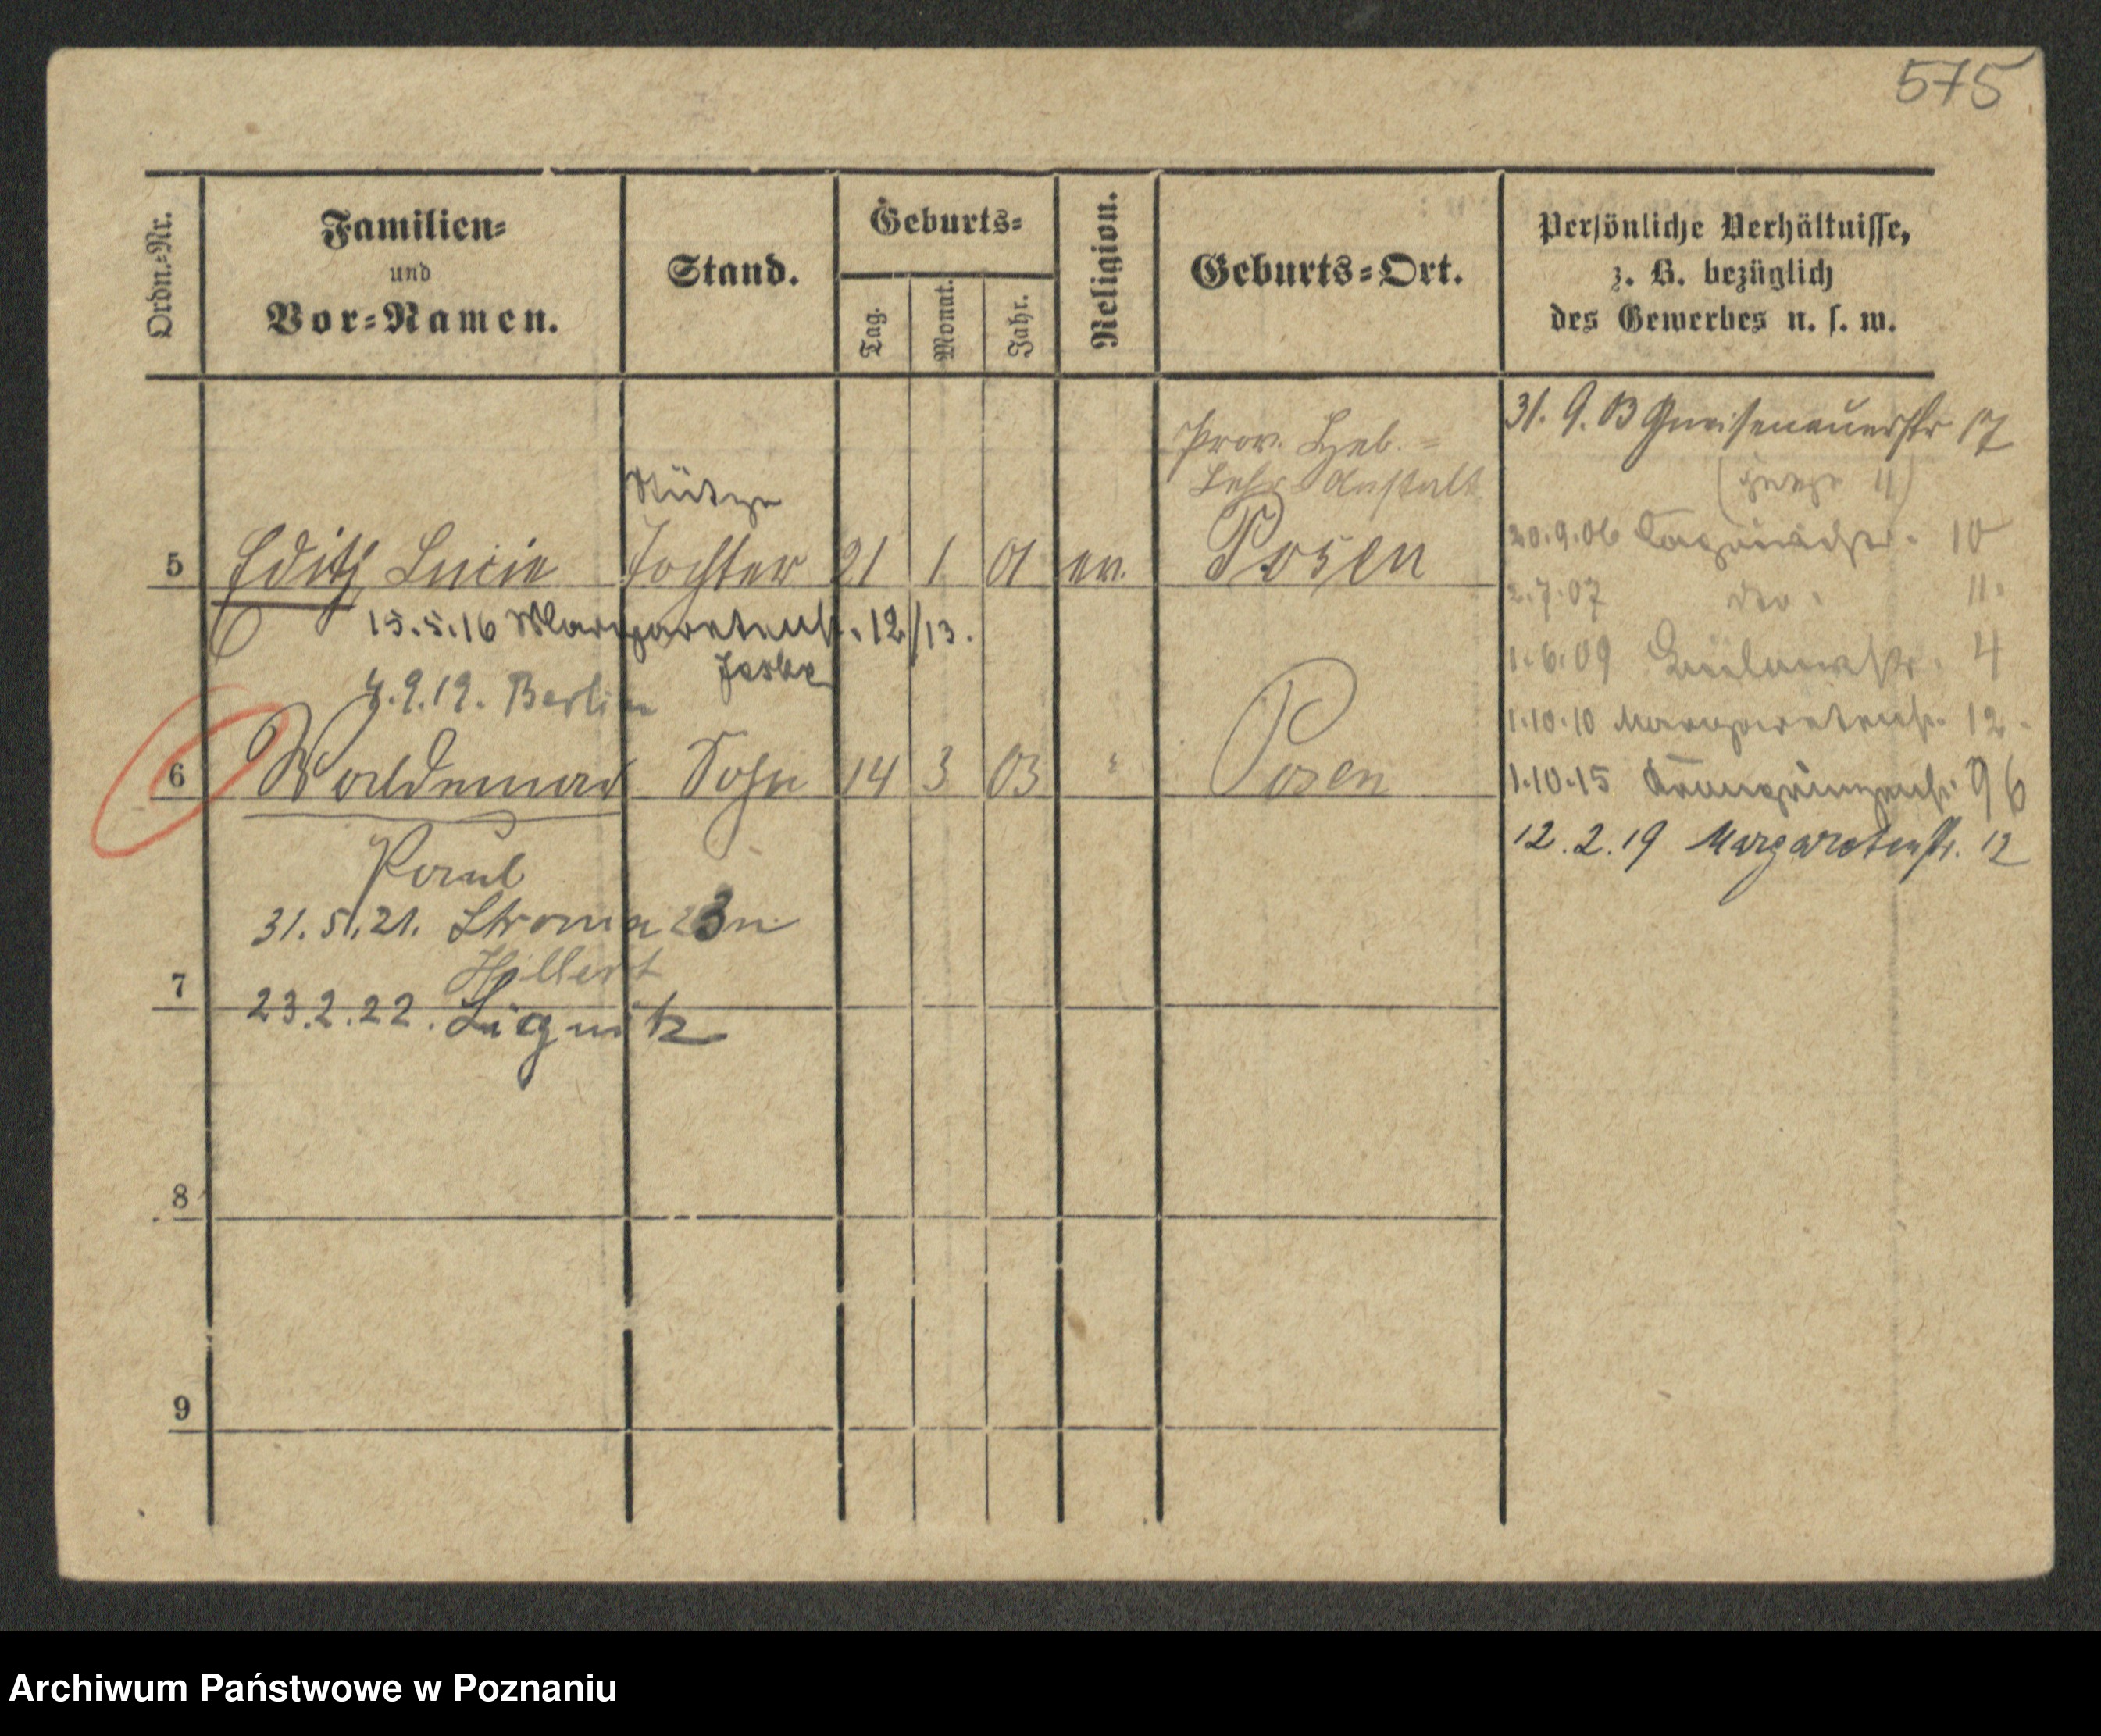 575
Ordn.=Nr.
Familien=
und
Vor=Namen.
Stand.
Geburts=
Tag.
Monat.
Jahr.
Religion.
Geburts=Ort.
Persönliche Verhältnisse,
z. B. bezüglich
des Gewerbes u. s. w.
31. 9. 03 Gneisenauerstr 17
Prov. Heb. =
Lehr Anstalt
Stütze
5 Edith Lucie Tochter 21 1 01 ev. Posen
20.9.06 10
2.7.07 dto. 11.
15.5.16 Margaretenstr. 12/13.
Jeske
1.6.09 Bülowstr. 4
4.9.19. Berlin
1.10.10 Margaretenstr. 12.
6 Woldemar Sohn 14 3 03 " Posen
1.10.15 Kronprinzenstr. 96
12.2.19 Margaretenstr. 12
Paul
31.5.21. Stroma 23
Hillert
7
23.2.22. Liegnitz
8
9
Archiwum Państwowe w Poznaniu